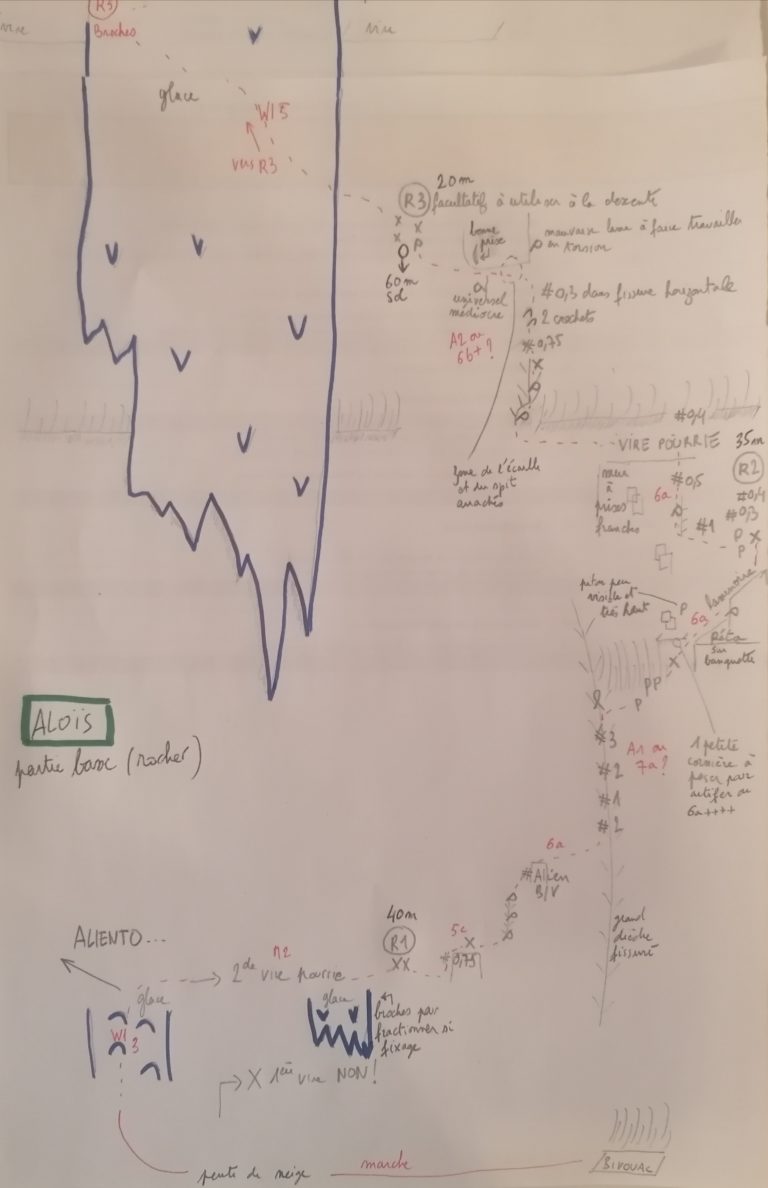 R3
Broches
vire
vire
glace
WI5
vers R3
20m
R3 facultatif à utiliser à la descente
60m
sol
bonne
prise
mauvaise lame à faire travailler
en torsion
universel
médiocre
#0,3 dans fissure horizontale
2 crochets
A2 ou
6b+?
#0,75
zone de l'écaille
et du spit
arrachés
#0,4
VIRE POURRIE
35m
R2
mur
à
prises
franches
#0,5
6a
#0,4
#0,3
#1
P
P
piton peu
visible et
très haut
P
6a
Réta
sur
banquette
PP
P
ALOÏS
partie basse (rocher)
#3
A1 ou
7a?
#2
#1
#2
1 petite
cornière à
poser par
artifer ou
6a++++
6a
#Alien
B/V
grand
dièdre
fissuré
40m
R1
XX
5c
X
#0,75
ALIENTO...
glace
WI
3
M2
2de vire pourrie
glace
broches par
fractionner si
fixage
X 1ère vire NON!
pente de neige
marche
BIVOUAC